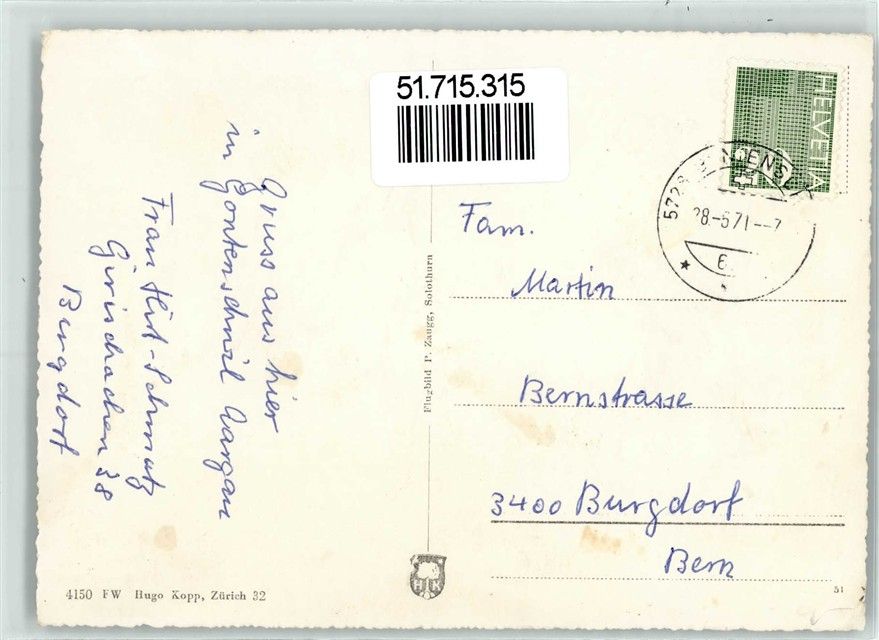 51.715.315
HELVETIA
5728
28.-6.71--7
6
Gruss aus hier
in Gontenschwil Aargau
Frau Hirt-Schmutz
Girischachen 38
Burgdorf
Fam.
Martin
Bernstrasse
3400 Burgdorf
Bern
Flugbild P. Zaugg, Solothurn
HK
4150 FW Hugo Kopp, Zürich 32
51